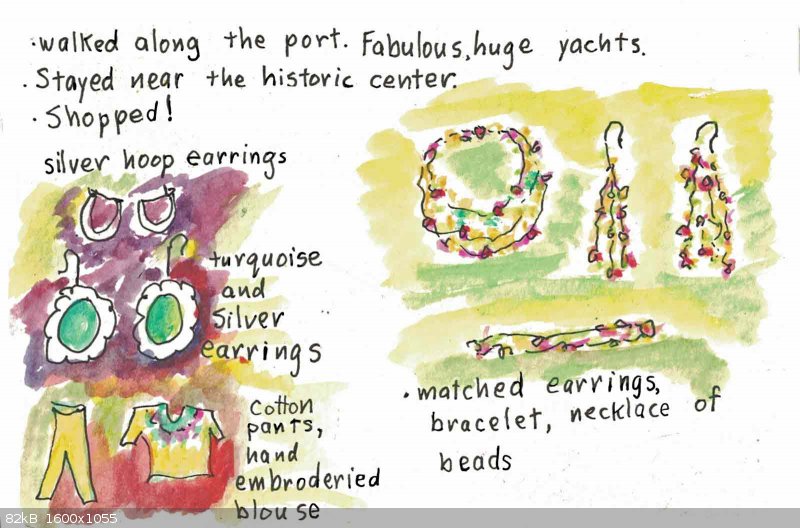 ·walked along the port. Fabulous, huge yachts.
·Stayed near the historic center.
·Shopped!
silver hoop earrings
turquoise
and
Silver
earrings
cotton
pants,
hand
embroderied
blouse
·matched earrings,
bracelet, necklace of
beads
82kB 1600x1055